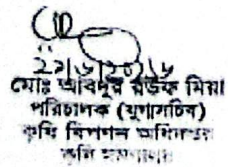 ২২/৬/২০১৬
মোঃ আবদুর রউফ মিয়া
পরিচালক (যুগ্মসচিব)
কৃষি বিপণন অধিদপ্তর
কৃষি মন্ত্রণালয়